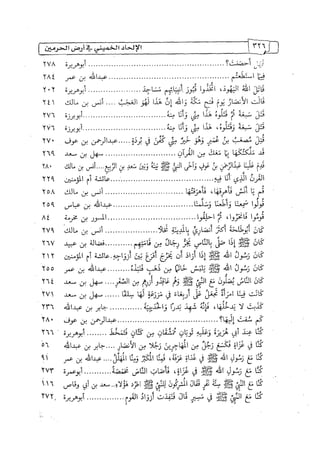 ٣٢٦ الإلحاد الخميني في أرض الحرمين
أين أحصنت؟ أبو هريرة ٢٧٨
فيما استطعتم عبدالله بن عمر ٢٨٤
قاتل الله اليهود، اتخذوا قبور أنبيائهم مساجد أبو هريرة ٢٠٢
قالت الأنصار يوم فتح مكة والله إن هذا لهو العجب أنس بن مالك ٢٤١
قتل سبعة ثم قتلوه هذا مني وأنا منه أبو برزة ٢٧٦
قتل سبعة وقتلوه، هذا مني وأنا منه أبو برزة ٢٧٦
قتل مصعب بن عمير وهو خير مني كفن في بردة عبدالرحمن بن عوف ٢٧٠
قد ملكتكها بما معك من القرآن سهل بن سعد ٢٦٩
قدم علينا عبدالرحمن بن عوف وآخى النبي ﷺ بينه وبين سعد بن الربيع أنس بن مالك ٢٨٠
القرن الذي أنا فيه عائشة أم المؤمنين ٢٢٩
قم يا أنس فأهرقها، فأهرقتها أنس بن مالك ٢٥٨
قوموا سمعنا وأطعنا وسلمنا عبدالله بن عباس ٢٥٩
قوموا فانحروا، ثم احلقوا المسور بن مخرمة ٨٤
كان أبو طلحة أكثر أنصاري بالمدينة نخلا أنس بن مالك ٢٧٩
كان ﷺ إذا صلى بالناس يخر رجال من قامتهم فضالة بن عبيد ٢٦٧
كان رسول الله ﷺ إذا أراد أن يخرج أقرع بين أزواجه عائشة أم المؤمنين ٢١٢
كان رسول الله ﷺ يلبس خاتما من ذهب فنبذه عبدالله بن عمر ٢٥٥
كان الناس يصلون مع النبي ﷺ وهم عاقدو أزرهم من الصغر سهل بن سعد ٢٦٤
كانت فينا امرأة تجعل على أربعاء في مزرعة لها سلقا سهل بن سعد ٢٧١
كذبت لا يدخلها، فإنه شهد بدرا والحديبية جابر بن عبدالله ٢٣٦
كم سقت إليها؟ عبدالرحمن بن عوف ٢٨٠
كنا عند أبي هريرة وعليه ثوبان ممشقان من كتان فتمخط أبو هريرة ٢٦٦
كنا في غزاة فكسع رجل من المهاجرين رجلا من الأنصار جابر بن عبدالله ٥٦
كنا مع رسول الله ﷺ في غداة عرفة، فمنا المكبر ومنا المهلل عبدالله بن عمر ٩١
كنا مع رسول الله ﷺ في غزاة، فأصاب الناس مخمصة أبو عمرة ٢٧٣
كنا مع النبي ﷺ ستة نفر فقال المشركون للنبي ﷺ اطرد هؤلاء سعد بن أبي وقاص ١١٦
كنا مع النبي ﷺ في مسير قال فنفدت أزواد القوم أبو هريرة ٢٧٢